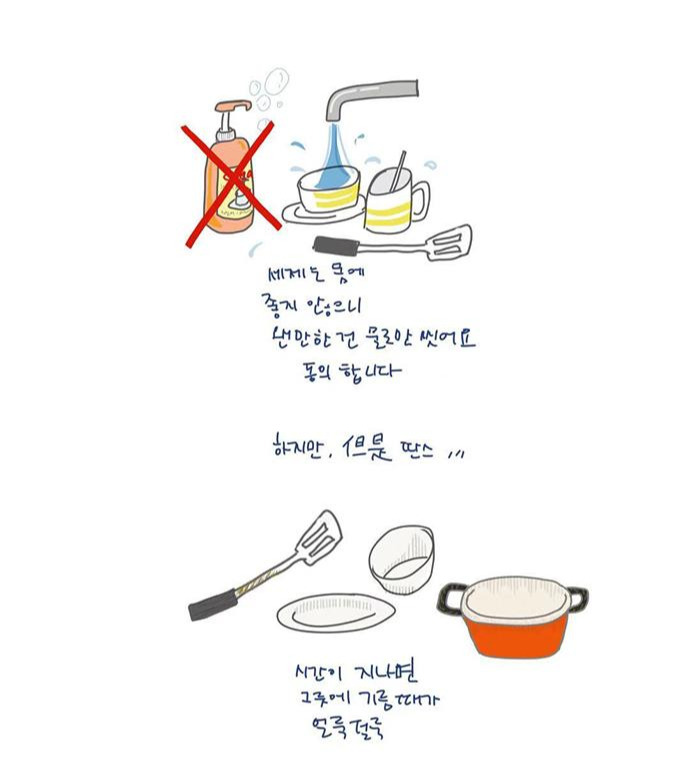 세제는 몸에
좋지 않으니
왠만한 건 물로만 씻어요
동의 합니다
하지만, 但是 딴스 ,,,
시간이 지나면
그릇에 기름때가
얼룩덜룩